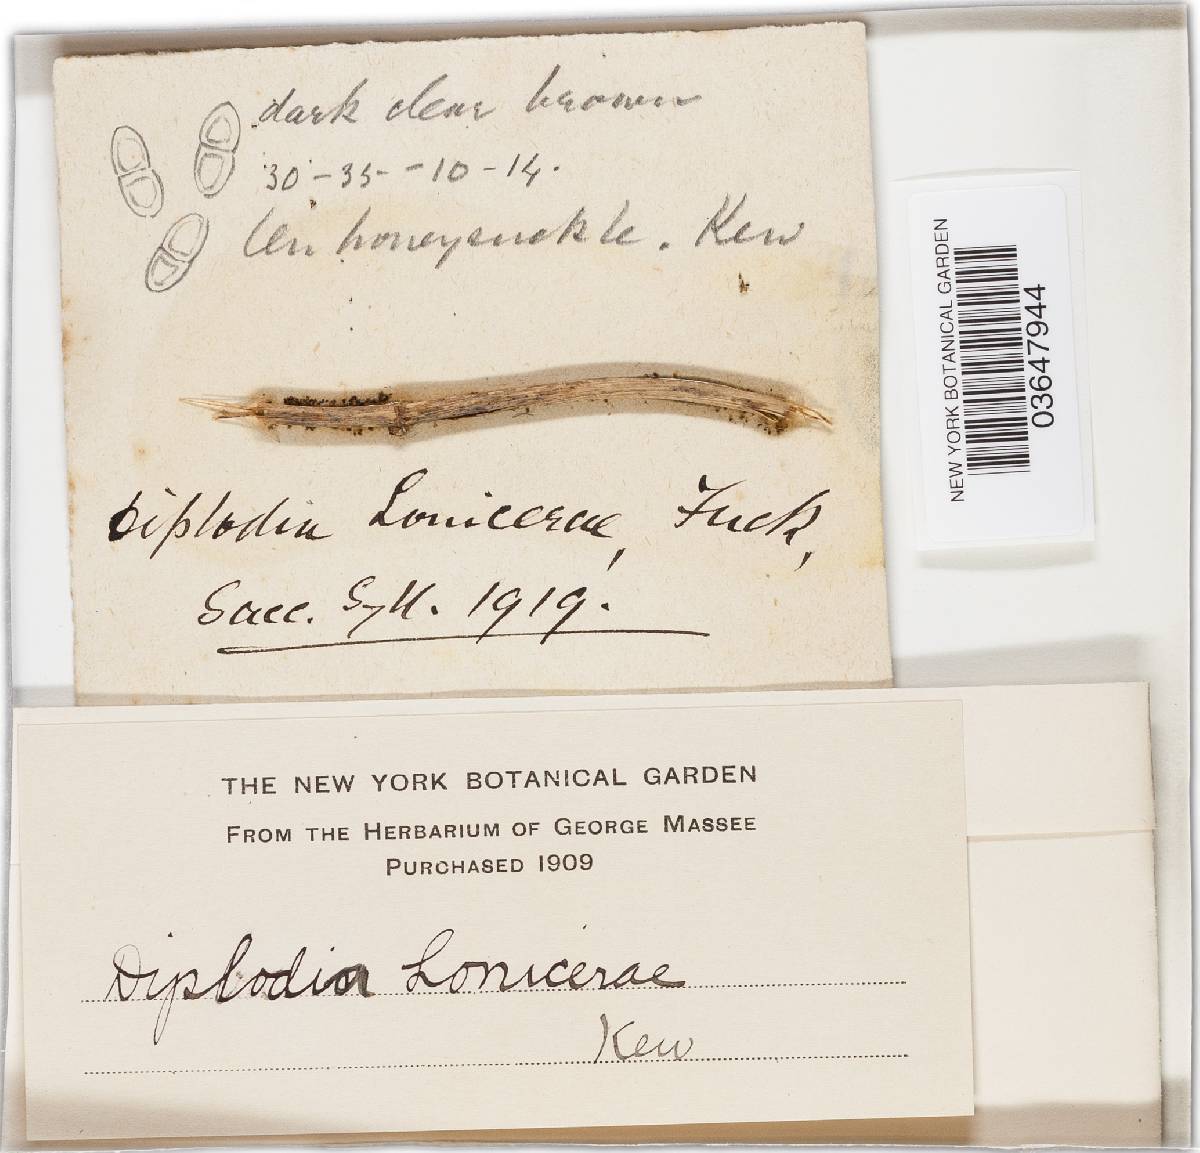 dark clear brown
30-35--10-14.
On honeysuckle. Kew
Diplodia Lonicerae, Fuck,
Sacc. Syll. 1919.
NEW YORK BOTANICAL GARDEN
03647944
THE NEW YORK BOTANICAL GARDEN
FROM THE HERBARIUM OF GEORGE MASSEE
PURCHASED 1909
Diplodia Lonicerae
Kew